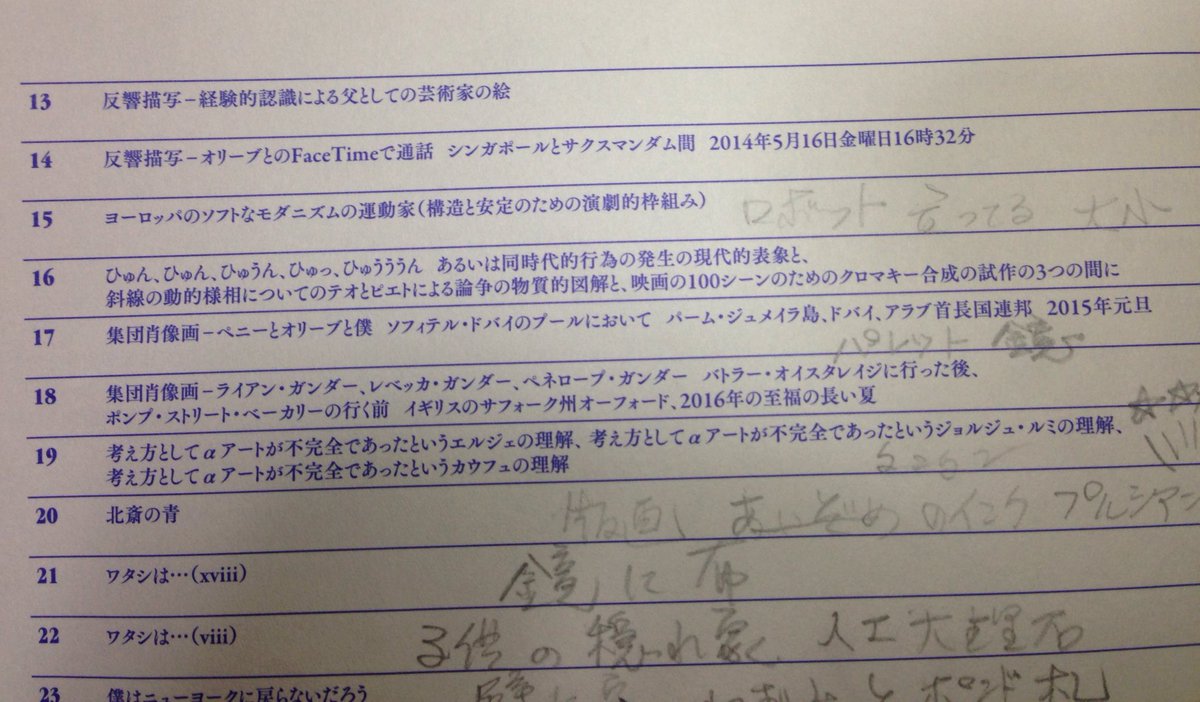 13 反響描写－経験的認識による父としての芸術家の絵
14 反響描写－オリーブとのFaceTimeで通話 シンガポールとサクスマンダム間 2014年5月16日金曜日16時32分
15 ヨーロッパのソフトなモダニズムの運動家(構造と安定のための演劇的枠組み) ロボット 言ってる 大小
16 ひゅん、ひゅん、ひゅうん、ひゅっ、ひゅうううん あるいは同時代的行為の発生の現代的表象と、
斜線の動的様相についてのテオとピエトによる論争の物質的図解と、映画の100シーンのためのクロマキー合成の試作の3つの間に
17 集団肖像画－ペニーとオリーブと僕 ソフィテル・ドバイのプールにおいて パーム・ジュメイラ島、ドバイ、アラブ首長国連邦 2015年元旦
パレット 鏡
18 集団肖像画－ライアン・ガンダー、レベッカ・ガンダー、ペネロープ・ガンダー バトラー・オイスタレイジに行った後、
ポンプ・ストリート・ベーカリーの行く前 イギリスのサフォーク州オーフォード、2016年の至福の長い夏
19 考え方としてαアートが不完全であったというエルジェの理解、考え方としてαアートが不完全であったというジョルジュ・ルミの理解、
考え方としてαアートが不完全であったというカウフュの理解
20 北斎の青 版画 あいぞめのインク プルシアン
21 ワタシは…(xviii) 鏡に布
22 ワタシは…(viii) 子供の隠れ家 人工大理石
23 僕はニューヨークに戻らないだろう ポンド札